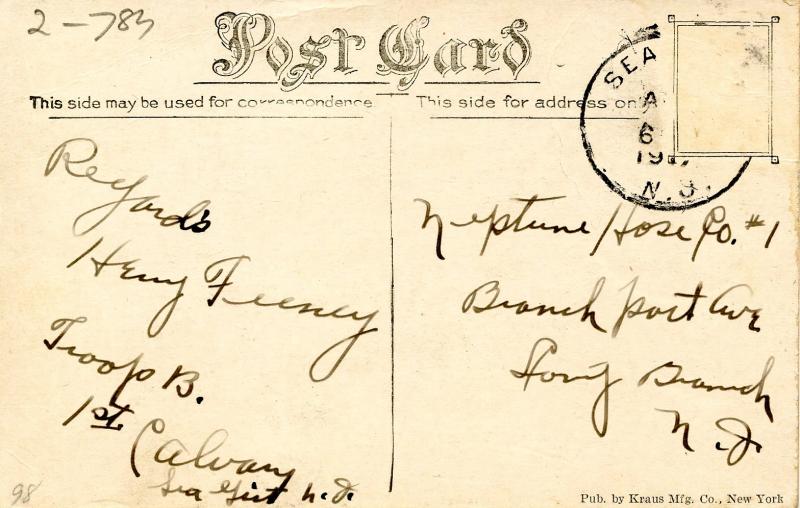 2-783
Post Card
This side may be used for correspondence
This side for address on
SEA
A
6
19
N.J.
Regards
Henry Feeney
Troop B.
1st.
Calvary
Sea Girt N.J.
Neptune Hose Co. #1
Branchport Ave
Long Branch
N.J.
98
Pub. by Kraus Mfg. Co., New York